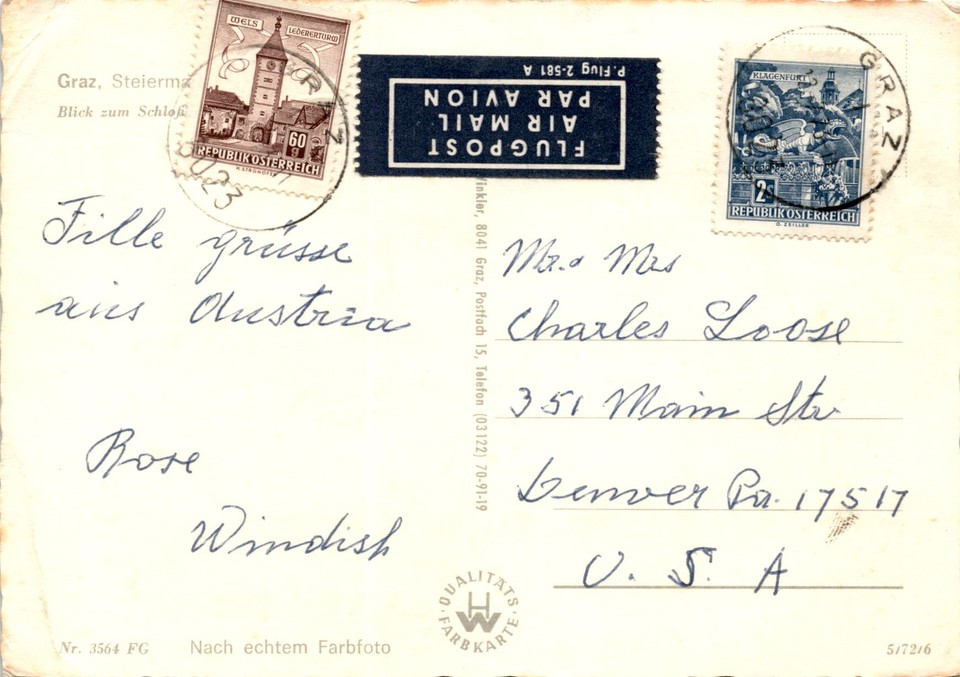 Graz, Steierma
Blick zum Schloß
WELS
LEDERERTURM
60
g
REPUBLIK ÖSTERREICH
GRAZ
8023
P. Flug 2-581 A
FLUGPOST
AIR MAIL
PAR AVION
KLAGENFURT
2 S
REPUBLIK ÖSTERREICH
GRAZ
Fille grüsse
aus Austria
Rose
Windish
Winkler, 8041 Graz, Postfach 15, Telefon (03122) 70-91-19
Mr. & Mrs
Charles Loose
351 Main Str
Denver Pa. 17517
U. S. A
QUALITÄTS
HW
FARBKARTE
Nr. 3564 FG
Nach echtem Farbfoto
5/72/6